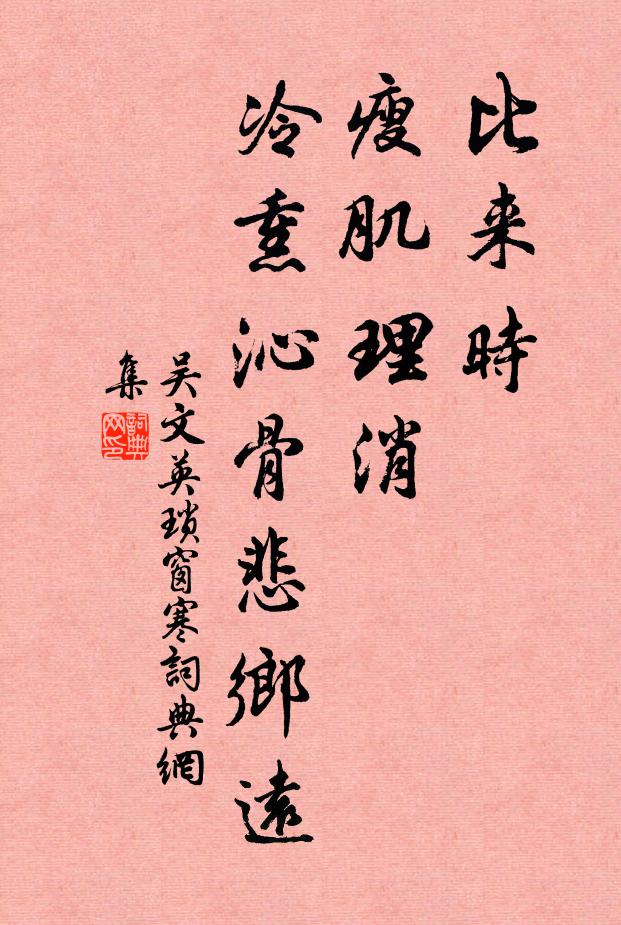 比来時
瘦肌理消
冷熏沁骨悲鄉遠
吴文英瑣窗寒詞典網
集
詞典
网印